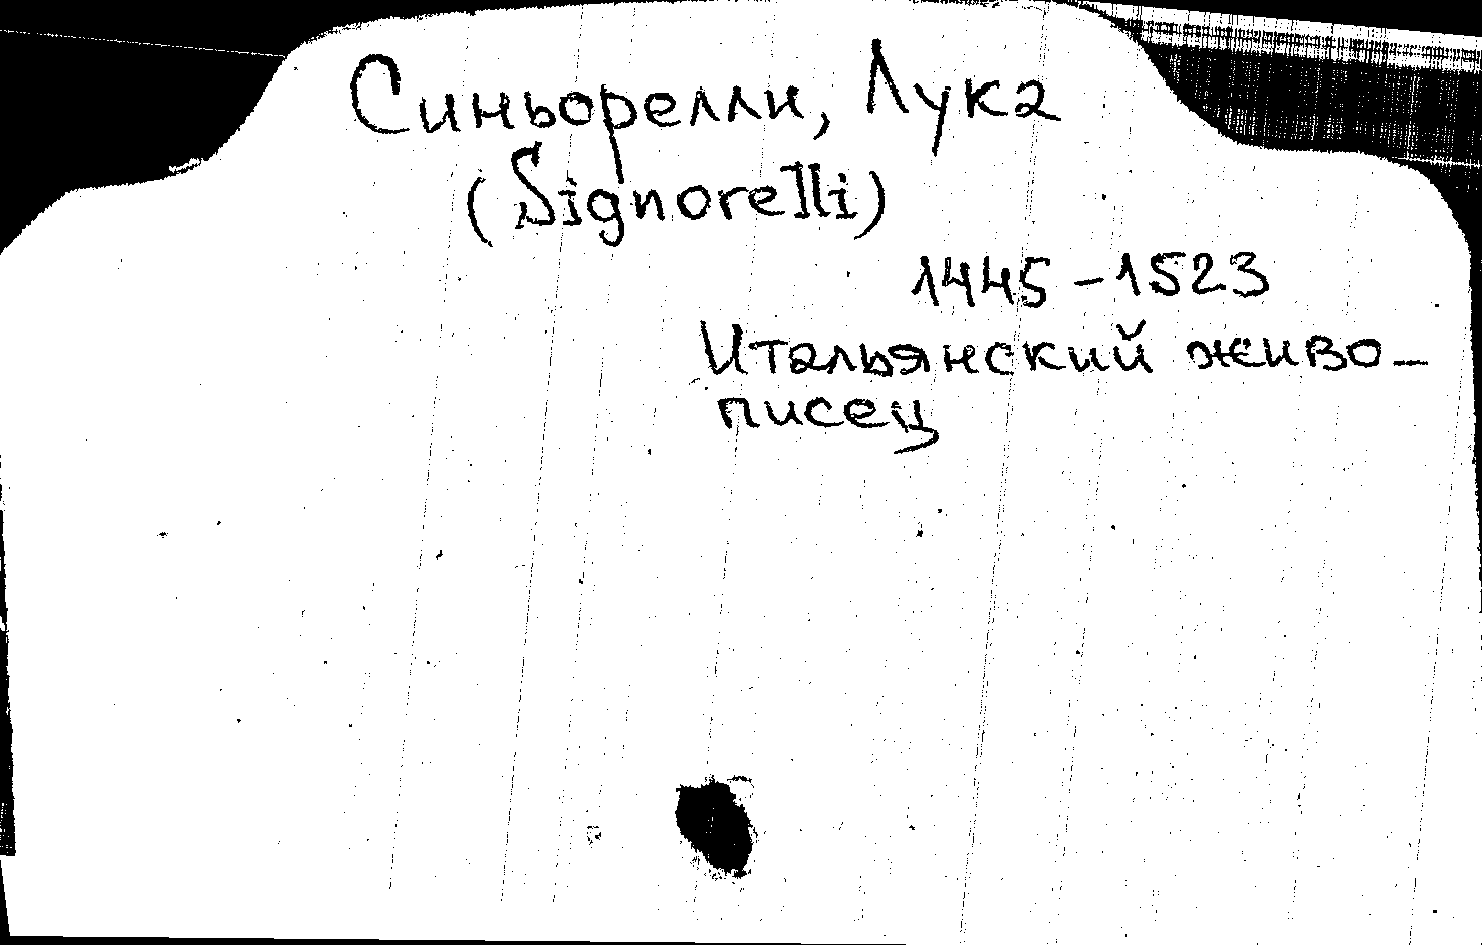 Синьорелли, Лука
(Signorelli)
1445-1523
Итальянский живо-
писец